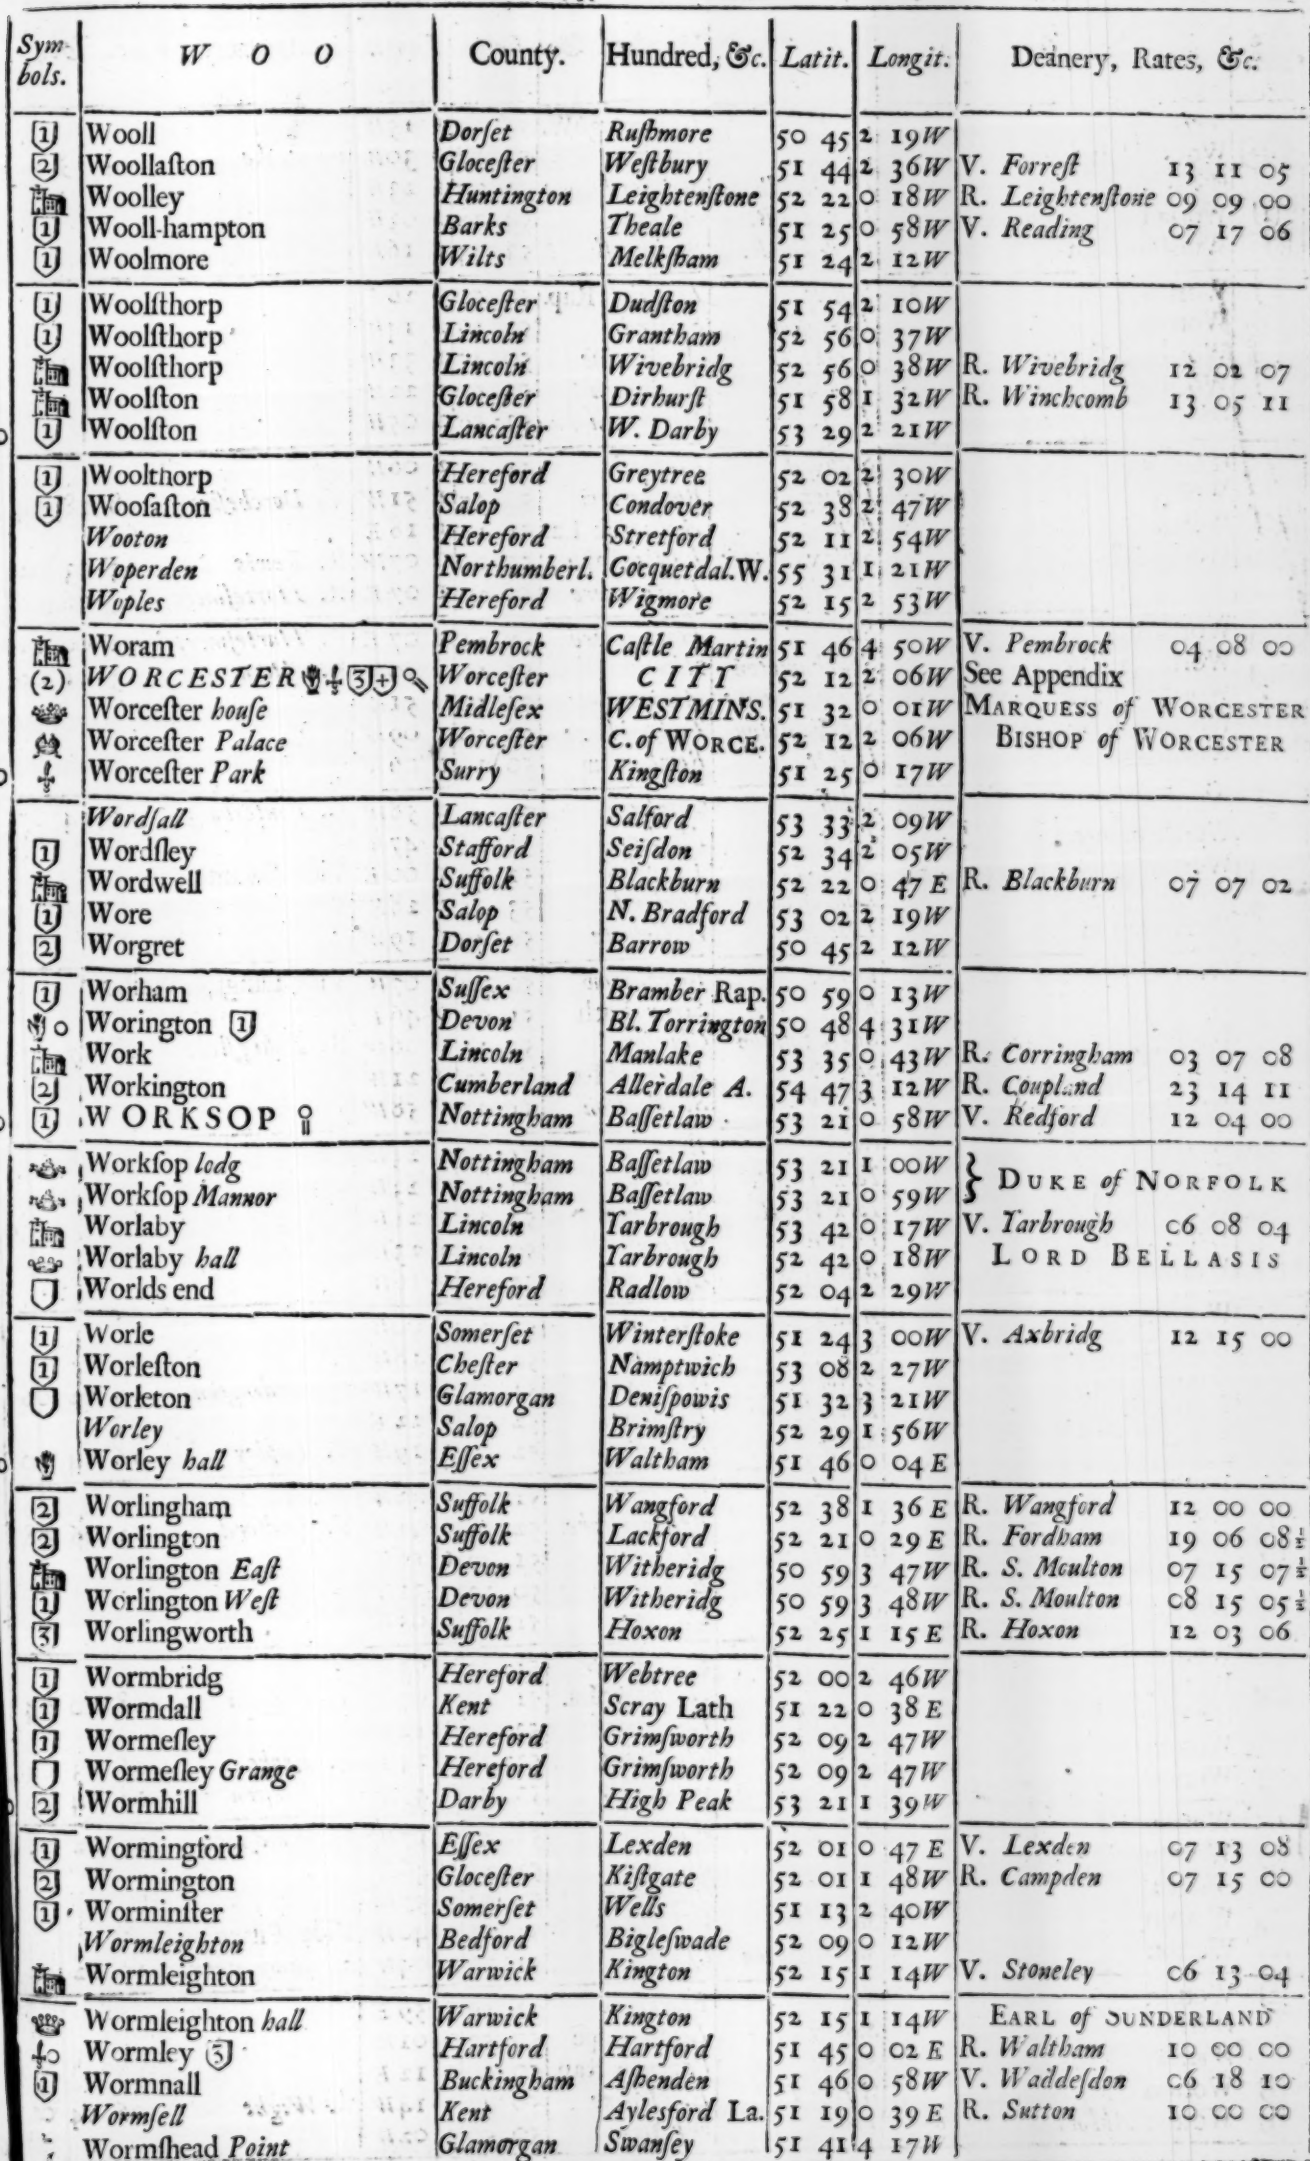 Symbols. W O O County. Hundred, &c. Latit. Longit. Deanery, Rates, &c.
1 Wooll Dorſet Ruſhmore 50 45 2 19W
2 Woollaſton Gloceſter Weſtbury 51 44 2 36W V. Forreſt 13 11 05
Woolley Huntington Leightenſtone 52 22 0 18W R. Leightenſtone 09 09 00
1 Wooll-hampton Barks Theale 51 25 0 58W V. Reading 07 17 06
1 Woolmore Wilts Melkſham 51 24 2 12W
1 Woolſthorp Gloceſter Dudſton 51 54 2 10W
1 Woolſthorp Lincoln Grantham 52 56 0 37W
Woolſthorp Lincoln Wivebridg 52 56 0 38W R. Wivebridg 12 02 07
Woolſton Gloceſter Dirhurſt 51 58 1 32W R. Winchcomb 13 05 11
1 Woolſton Lancaſter W. Darby 53 29 2 21W
1 Woolthorp Hereford Greytree 52 02 2 30W
1 Wooſaſton Salop Condover 52 38 2 47W
Wooton Hereford Stretford 52 11 2 54W
Woperden Northumberl. Cocquetdal.W. 55 31 1 21W
Woples Hereford Wigmore 52 15 2 53W
Woram Pembrock Caſtle Martin 51 46 4 50W V. Pembrock 04 08 00
(2) WORCESTER 3 + Worceſter CITY 52 12 2 06W See Appendix
Worceſter houſe Midleſex WESTMINS. 51 32 0 01W MARQUESS of WORCESTER
Worceſter Palace Worceſter C. of WORCE. 52 12 2 06W BISHOP of WORCESTER
Worceſter Park Surry Kingſton 51 25 0 17W
Wordſall Lancaſter Salford 53 33 2 09W
1 Wordſley Stafford Seiſdon 52 34 2 05W
Wordwell Suffolk Blackburn 52 22 0 47 E R. Blackburn 07 07 02
1 Wore Salop N. Bradford 53 02 2 19W
2 Worgret Dorſet Barrow 50 45 2 12W
1 Worham Suſſex Bramber Rap. 50 59 0 13W
Worington 1 Devon Bl. Torrington 50 48 4 31W
Work Lincoln Manlake 53 35 0 43W R. Corringham 03 07 08
2 Workington Cumberland Allerdale A. 54 47 3 12W R. Coupland 23 14 11
1 WORKSOP Nottingham Baſſetlaw 53 21 0 58W V. Redford 12 04 00
Workſop lodg Nottingham Baſſetlaw 53 21 1 00W } DUKE of NORFOLK
Workſop Mannor Nottingham Baſſetlaw 53 21 0 59W
Worlaby Lincoln Yarbrough 53 42 0 17W V. Yarbrough 06 08 04
Worlaby hall Lincoln Yarbrough 52 42 0 18W LORD BELLASIS
Worlds end Hereford Radlow 52 04 2 29W
1 Worle Somerſet Winterſtoke 51 24 3 00W V. Axbridg 12 15 00
1 Worleſton Cheſter Namptwich 53 08 2 27W
Worleton Glamorgan Deniſpowis 51 32 3 21W
Worley Salop Brimſtry 52 29 1 56W
Worley hall Eſſex Waltham 51 46 0 04 E
2 Worlingham Suffolk Wangford 52 38 1 36 E R. Wangford 12 00 00
2 Worlington Suffolk Lackford 52 21 0 29 E R. Fordham 19 06 08½
Worlington Eaſt Devon Witheridg 50 59 3 47W R. S. Moulton 07 15 07½
1 Worlington Weſt Devon Witheridg 50 59 3 48W R. S. Moulton 08 15 05½
3 Worlingworth Suffolk Hoxon 52 25 1 15 E R. Hoxon 12 03 06
1 Wormbridg Hereford Webtree 52 00 2 46W
1 Wormdall Kent Scray Lath 51 22 0 38 E
1 Wormeſley Hereford Grimſworth 52 09 2 47W
Wormeſley Grange Hereford Grimſworth 52 09 2 47W
2 Wormhill Darby High Peak 53 21 1 39W
1 Wormingford Eſſex Lexden 52 01 0 47 E V. Lexden 07 13 08
2 Wormington Gloceſter Kiſtgate 52 01 1 48W R. Campden 07 15 00
1 Worminſter Somerſet Wells 51 13 2 40W
Wormleighton Bedford Bigleſwade 52 09 0 12W
Wormleighton Warwick Kington 52 15 1 14W V. Stoneley 06 13 04
Wormleighton hall Warwick Kington 52 15 1 14W EARL of SUNDERLAND
Wormley 3 Hartford Hartford 51 45 0 02 E R. Waltham 10 00 00
1 Wormnall Buckingham Aſhenden 51 46 0 58W V. Waddeſdon 06 18 10
Wormſell Kent Aylesford La. 51 19 0 39 E R. Sutton 10 00 00
Wormſhead Point Glamorgan Swanſey 51 41 4 17W